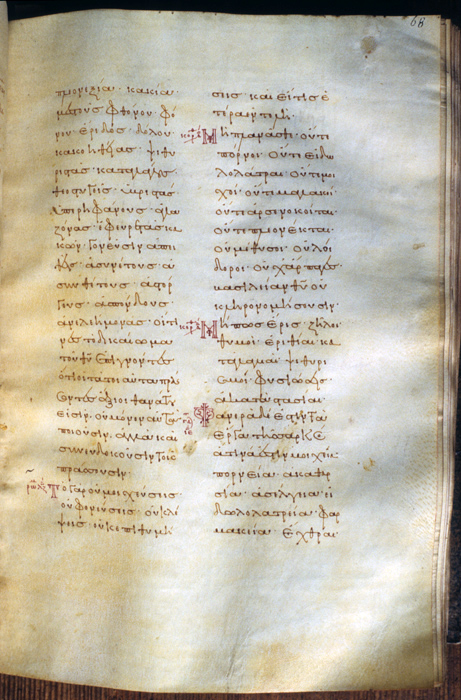 68
πλεονεξία· κακία·
μεστοὺς φθόνου· φό
νου· ἔριδος· δόλου·
κακοηθείας· ψιθυ
ριστάς· καταλάλους·
θεοστυγεῖς· ὑβριστάς·
ὑπερηφάνους· ἀλα
ζόνας· ἐφευρετὰς κα
κῶν· γονεῦσιν ἀπει
θεῖς· ἀσυνέτους· ἀ
συνθέτους· ἀστόρ
γους· ἀσπόνδους·
ἀνελεήμονας· οἵτι
νες τὸ δικαίωμα
τοῦ θυ ἐπιγνόντες
ὅτι οἱ τὰ τοιαῦτα πράσ
σοντες ἄξιοι θανάτου
εἰσίν· οὐ μόνον αὐτὰ
ποιοῦσιν· ἀλλὰ καὶ
συνευδοκοῦσιν τοῖς
πράσσουσιν·
Τὸ γὰρ οὐ μοιχεύσεις·
οὐ φονεύσεις· οὐ κλέ
ψεις· οὐκ ἐπιθυμή
σεις· καὶ εἴ τις ἑ
τέρα ἐντολή·
Μὴ πλανᾶσθε· οὔτε
πόρνοι· οὔτε εἰδω
λολάτραι· οὔτε μοι
χοί· οὔτε μαλακοί·
οὔτε ἀρσενοκοῖται·
οὔτε πλεονέκται·
οὐ μέθυσοι· οὐ λοί
δοροι· οὐχ ἅρπαγες
βασιλείαν θυ οὐ
κληρονομήσουσιν·
Μή πως ἔρεις· ζῆλοι·
θυμοί· ἐριθεῖαι· κα
ταλαλιαί· ψιθυρι
σμοί· φυσιώσεις·
ἀκαταστασίαι·
Φανερὰ δέ ἐστιν τὰ
ἔργα τῆς σαρκός·
ἅτινά ἐστιν μοιχεία·
πορνεία· ἀκαθαρ
σία· ἀσέλγεια· εἰ
δωλολατρεία· φαρ
μακεία· ἔχθραι·